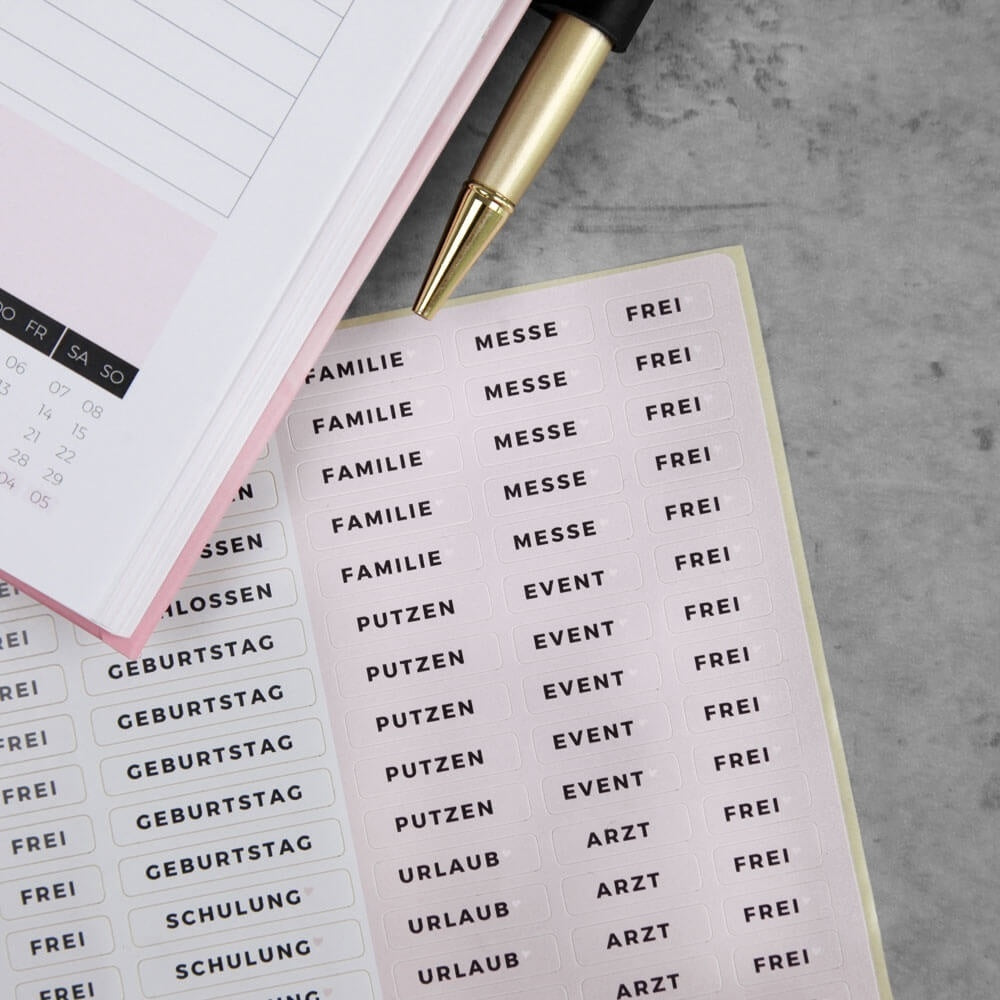 DO FR SA SO
06 07 08
13 14 15
21 22
28 29
04 05
REI
REI
FREI
FREI
FREI
FREI
FREI
FREI
EN
SSEN
HLOSSEN
GEBURTSTAG
GEBURTSTAG
GEBURTSTAG
GEBURTSTAG
GEBURTSTAG
SCHULUNG
SCHULUNG
NG
FAMILIE
FAMILIE
FAMILIE
FAMILIE
FAMILIE
PUTZEN
PUTZEN
PUTZEN
PUTZEN
PUTZEN
URLAUB
URLAUB
URLAUB
MESSE
MESSE
MESSE
MESSE
MESSE
EVENT
EVENT
EVENT
EVENT
EVENT
ARZT
ARZT
ARZT
ARZT
FREI
FREI
FREI
FREI
FREI
FREI
FREI
FREI
FREI
FREI
FREI
FREI
FREI
FREI